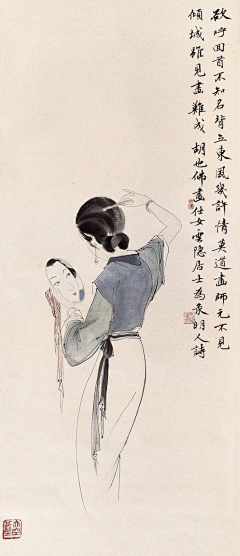 欲呼回首不知名背立東風幾許情莫道畫師元不見
傾城雖見畫難成 胡也佛畫仕女雲隱居士為彔明人詩